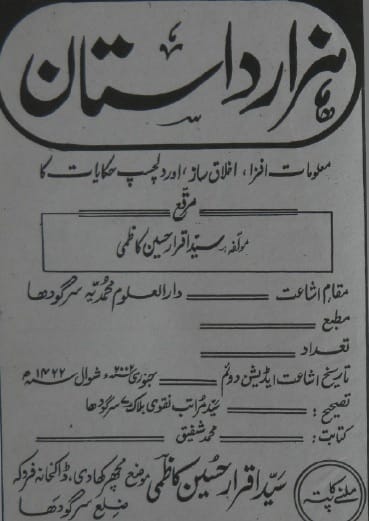 ہزار داستان
معلومات افزا، اخلاق ساز، اور دلچسپ حکایات کا
مرقع
مولفہ: سیّد اقرار حسین کاظمی
مقام اشاعت دارالعلوم محمدیہ سرگودھا
مطبع
تعداد
تاریخ اشاعت ایڈیشن دوئم جنوری ۲۰۰۲ء شوال سنہ ۱۴۲۲ھ
تصحیح: سیّد مراتب نقوی بلاک ۷ سرگودھا
کتابت: محمد شفیق
ملنے کا پتہ
سیّد اقرار حسین کاظمی موضع مجھر کھادی، ڈاکخانہ فروکہ
ضلع سرگودھا